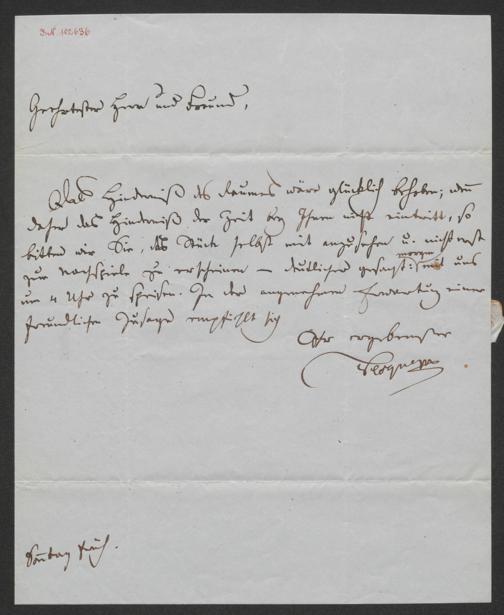 I.N. 102636
Geehrtester Herr und Freund,
Das Hinderniß des Raumes wäre glücklich behoben; wenn
daher das Hinderniß der Zeit bey Ihnen nicht eintritt, so
bitten wir Sie, das Stück selbst mit anzusehen u. nicht erst
zum Nachspiele zu erscheinen – deutlicher gesagt: morgen mit uns
um 4 Uhr zu speisen. In der angenehmen Erwartung einer
freundlichen Zusage empfiehlt sich
Ihr ergebenster
Sonntag früh.